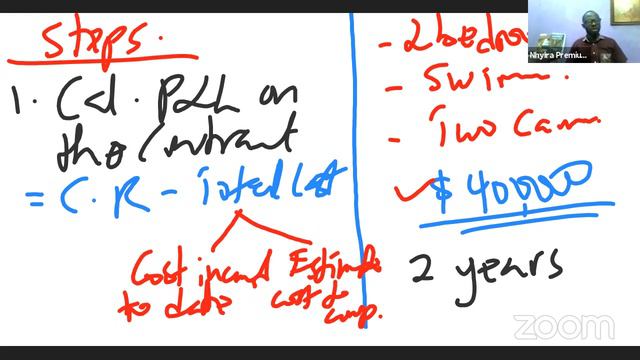 Steps.
1. Cal. P&L on
the Contract
= C.R - Total Cost
Cost incurred
to date
Estimate
cost to
comp.
- 2 bedroo
- Swim.
- Two Ca
$ 40,000
2 years
-Nhyira Premiu...
zoom